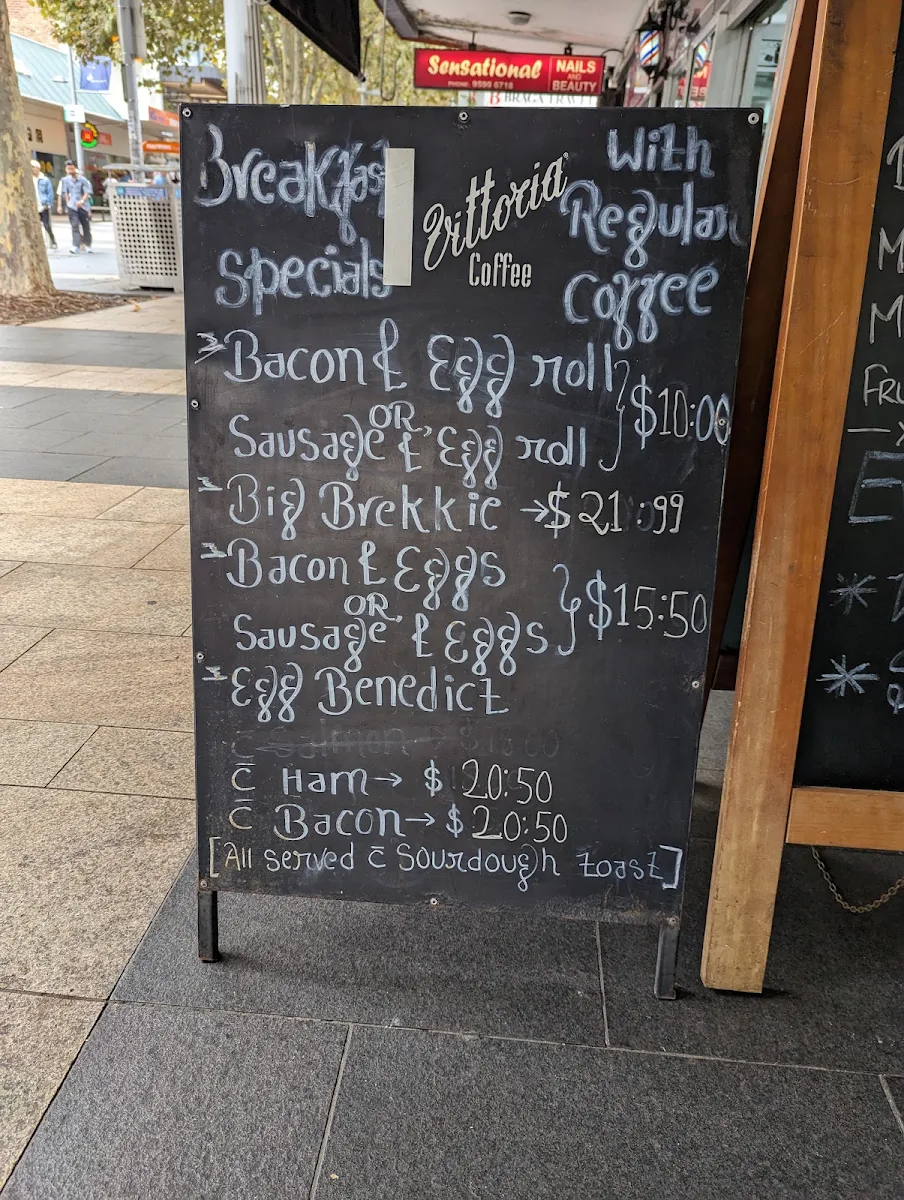 Sensational NAILS AND BEAUTY
PHONE: 9599 6718
Breakfast With
Vittoria Regular
Specials Coffee coffee
Bacon & Egg roll
OR, } $10:00
Sausage & Egg roll
Big Brekkie → $21:99
Bacon & Eggs
OR, } $15:50
Sausage & Eggs
Egg Benedict
c̄ Salmon → $18:00
c̄ Ham → $20:50
c̄ Bacon → $20:50
[All served c̄ Sourdough toast]
M
M
FRU